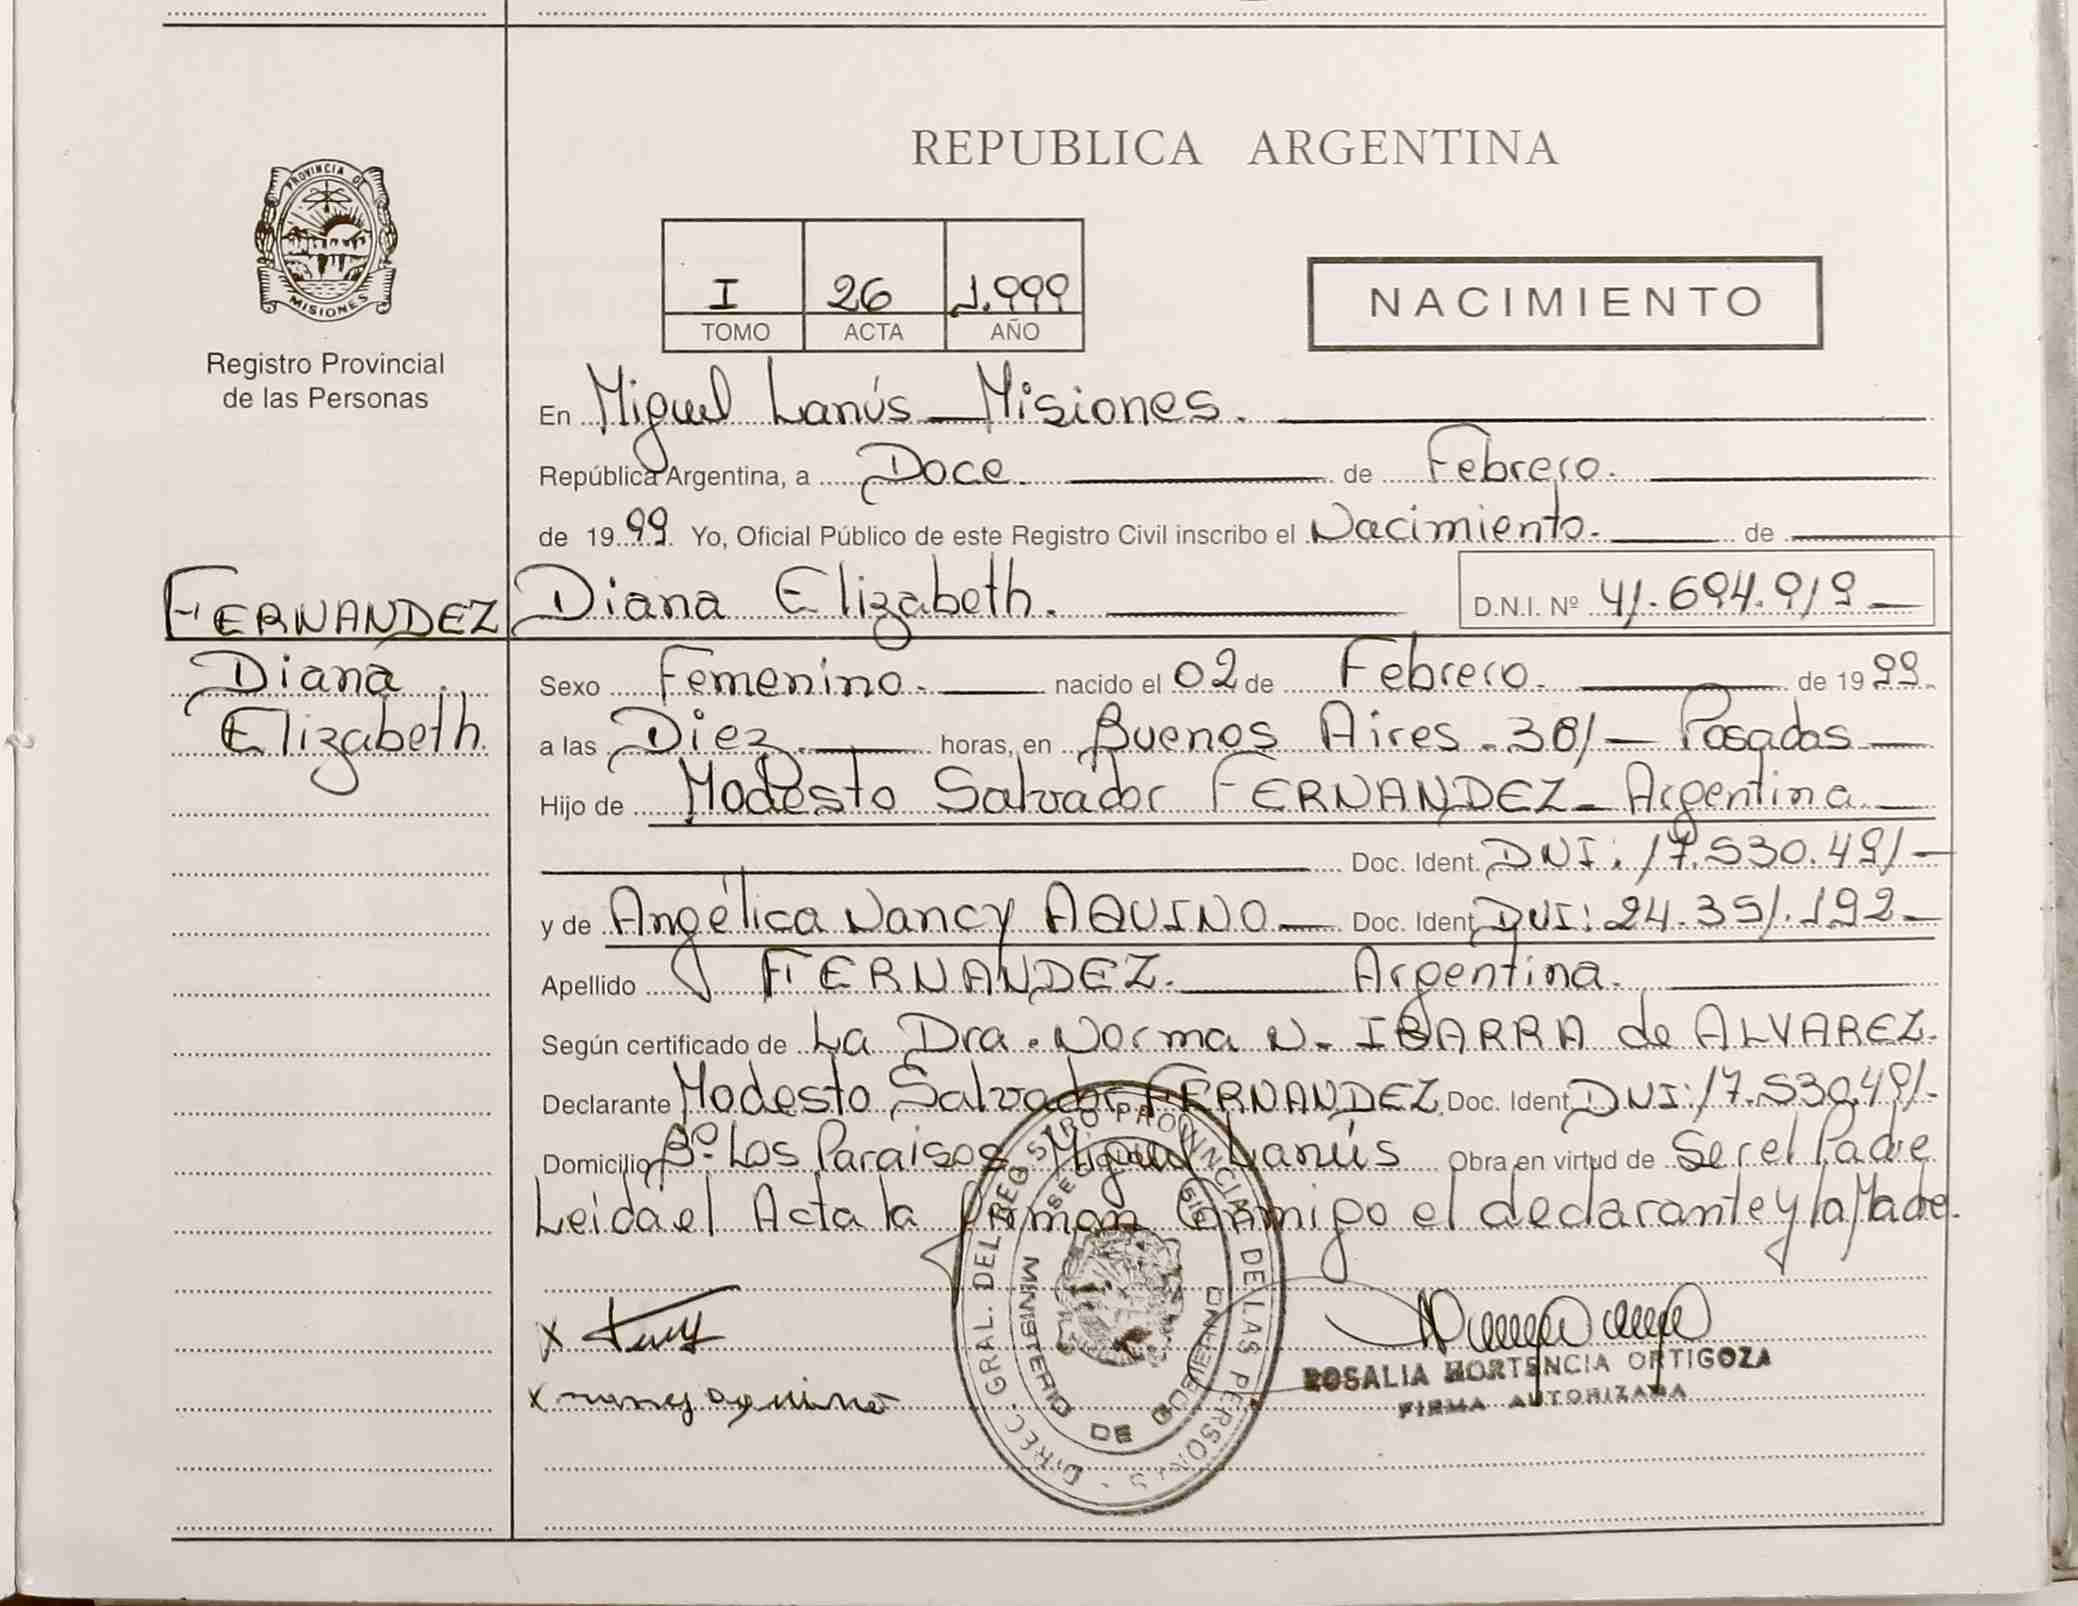 REPUBLICA ARGENTINA
PROVINCIA DE MISIONES
Registro Provincial
de las Personas
I 26 1.999
TOMO ACTA AÑO
NACIMIENTO
En Miguel Lanús - Misiones.
República Argentina, a Doce. de Febrero.
de 1999. Yo, Oficial Público de este Registro Civil inscribo el Nacimiento. de
FERNANDEZ Diana Elizabeth. D.N.I. Nº 41.694.919
Diana
Elizabeth
Sexo Femenino. nacido el 02 de Febrero. de 1999.
a las Diez. horas, en Buenos Aires. 301 - Posadas
Hijo de Modesto Salvador FERNANDEZ - Argentina.
Doc. Ident. DNI: 17.530.491-
y de Angélica Nancy AQUINO - Doc. Ident. DNI: 24.351.192-
Apellido FERNANDEZ. Argentina.
Según certificado de La Dra. Norma N. IBARRA de ALVAREZ.
Declarante Modesto Salvador FERNANDEZ. Doc. Ident. DNI: 17.530.491-
Domicilio Bº Los Paraisos Miguel Lanús Obra en virtud de Ser el Padre
Leida el Acta la firman Conmigo el declarante y la Madre.
DIREC. GRAL. DEL REGISTRO PROVINCIAL DE LAS PERSONAS
MINISTERIO DE GOBIERNO
x nancy aquino
ROSALIA HORTENCIA ORTIGOZA
FIRMA AUTORIZADA